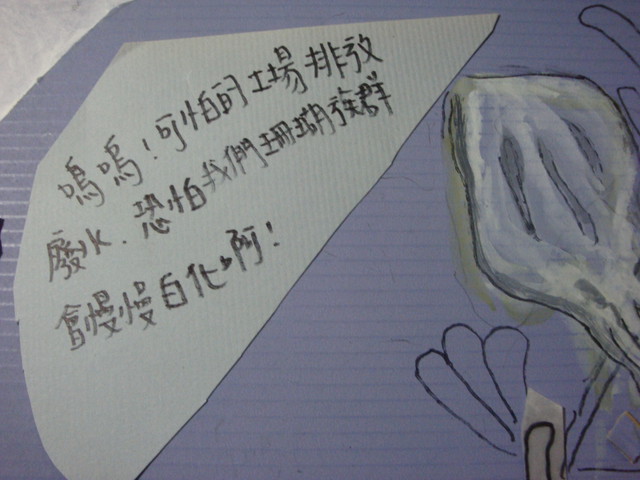 嗚嗚!可怕的工場排放
廢水.恐怕我們珊瑚族群
會慢慢白化啊!